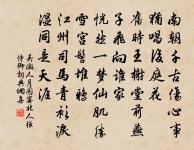 南朝千古傷心事
猶唱後庭花
舊時王謝堂前燕
子飛向誰家
恍然一夢仙肌勝
雪宮髻堆鴉
江州司馬青衫淚
濕同是天涯
吳激人月圓宴北人張
侍御詞典網書